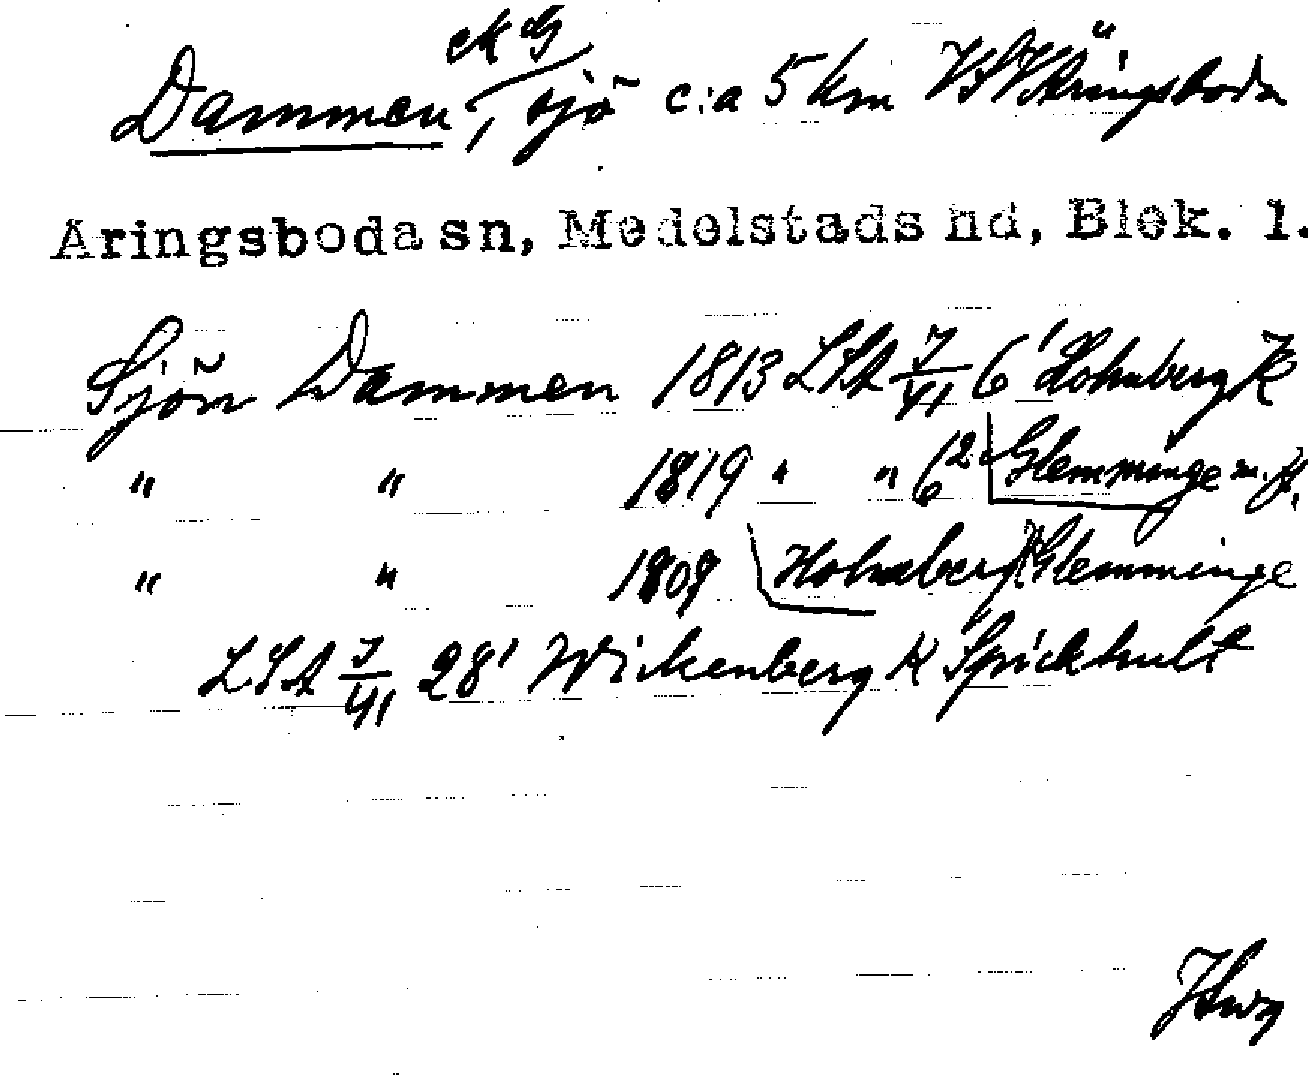 ekG
Dammen, sjö c:a 5 km VSV Äringsboda
Äringsboda sn, Medelstads hd, Blek. l.
Sjön Dammen 1813 LSA J/VI 6¹ Holmberg K
" " 1819 " " 6² Glemminge m. fl.
" " 1809 Holmberg K Glemminge
LSA J/VI 28¹ Wickenberg K Spickhult